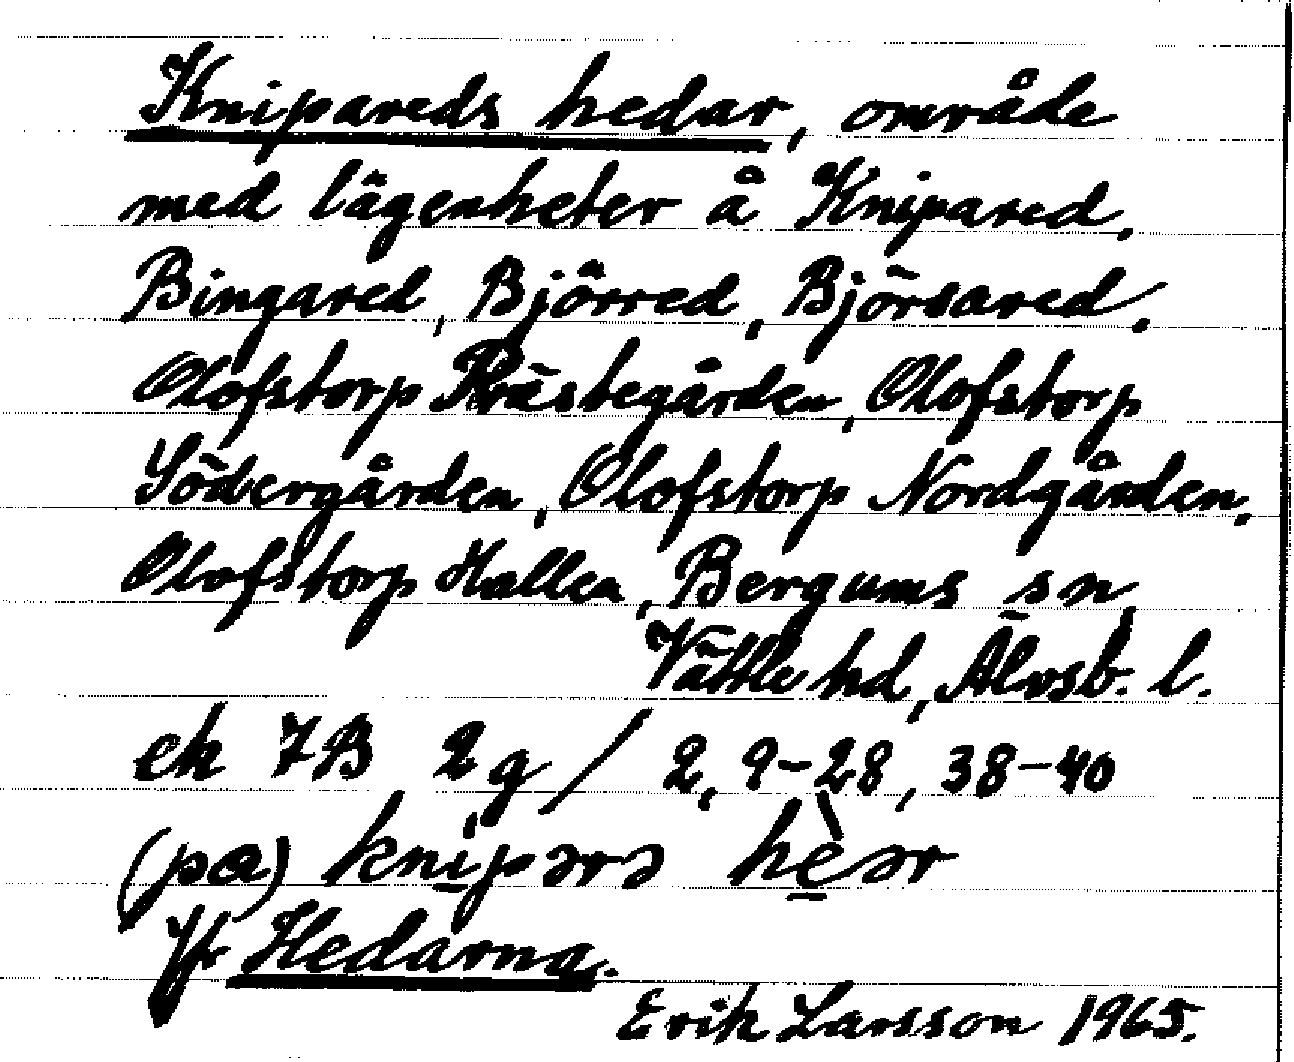 Knipareds hedar, område
med lägenheter å Knipared,
Bingared, Björred, Björsared,
Olofstorp Prästegården, Olofstorp
Södergården, Olofstorp Nordgården,
Olofstorp Hallen, Bergums sn,
Vättle hd, Älvsb. l.
ek 7B 2g / 2, 9-28, 38-40
(pɑ) kni̱pərs hè̱ər
Jfr Hedarna.
Erik Larsson 1965.